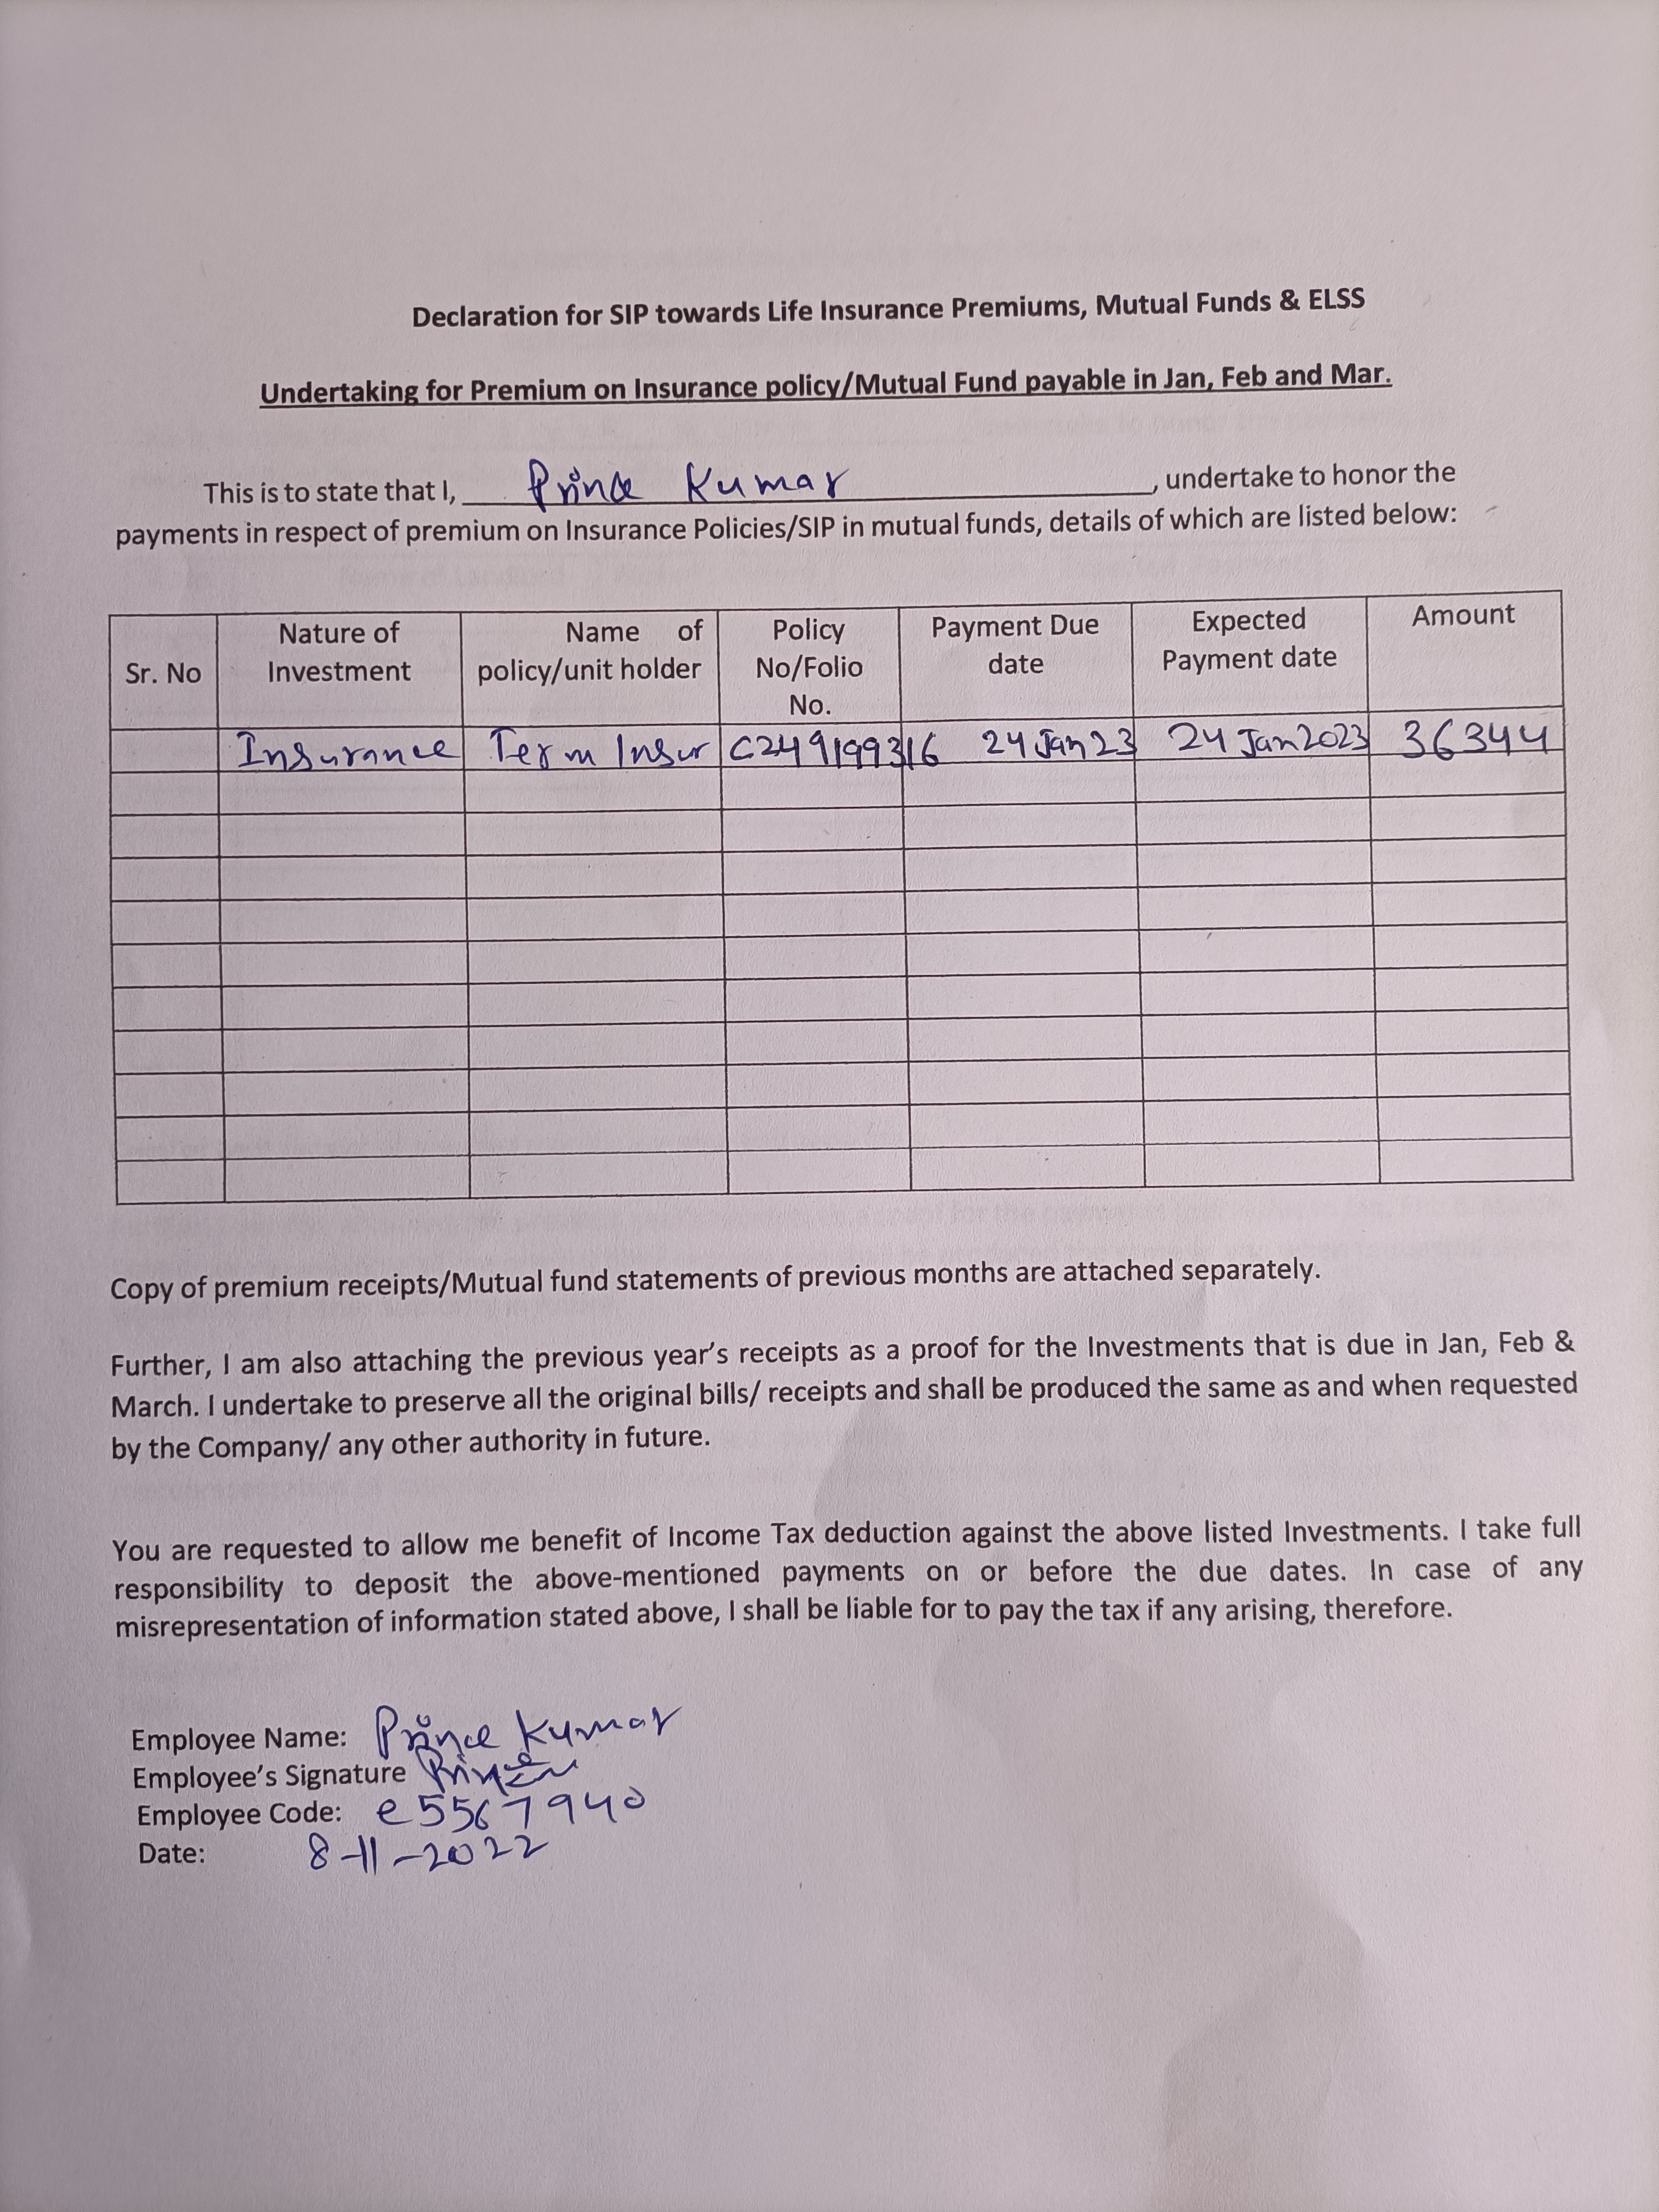 Declaration for SIP towards Life Insurance Premiums, Mutual Funds & ELSS
Undertaking for Premium on Insurance policy/Mutual Fund payable in Jan, Feb and Mar.
This is to state that I, Prince Kumar, undertake to honor the
payments in respect of premium on Insurance Policies/SIP in mutual funds, details of which are listed below:
Sr. No Nature of Investment Name of policy/unit holder Policy No/Folio No. Payment Due date Expected Payment date Amount
Insurance Term Insur C249199316 24 Jan 23 24 Jan 2023 36344
Copy of premium receipts/Mutual fund statements of previous months are attached separately.
Further, I am also attaching the previous year's receipts as a proof for the Investments that is due in Jan, Feb &
March. I undertake to preserve all the original bills/ receipts and shall be produced the same as and when requested
by the Company/ any other authority in future.
You are requested to allow me benefit of Income Tax deduction against the above listed Investments. I take full
responsibility to deposit the above-mentioned payments on or before the due dates. In case of any
misrepresentation of information stated above, I shall be liable for to pay the tax if any arising, therefore.
Employee Name: Prince Kumar
Employee's Signature Prince
Employee Code: e5567940
Date: 8-11-2022